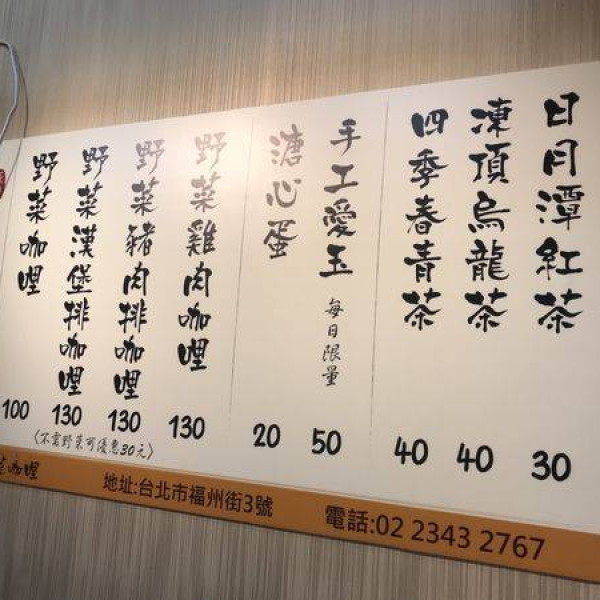 日月潭紅茶 30
凍頂烏龍茶 40
四季春青茶 40
手工愛玉 每日限量 50
溏心蛋 20
野菜雞肉咖哩 130
野菜豬肉排咖哩 130
野菜漢堡排咖哩 130
野菜咖哩 100
〈不需野菜可優惠30元〉
咖哩
地址:台北市福州街3號
電話:02 2343 2767